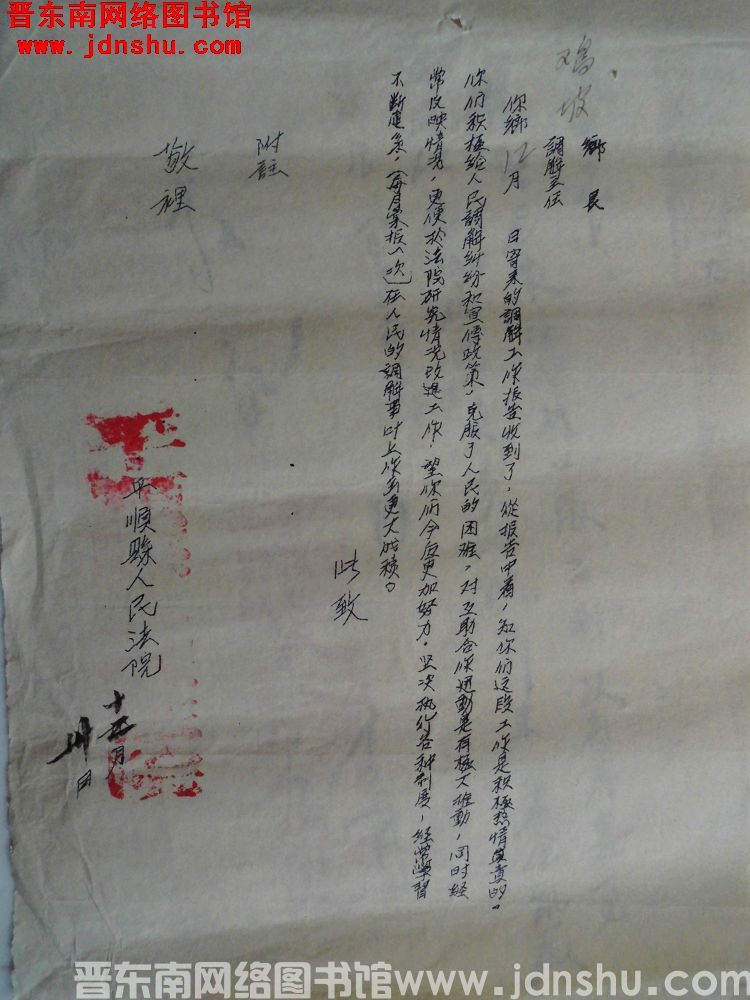 晋东南网络图书馆
www.jdnshu.com
鄉長
鸡坡
調解主任
你鄉12月 日寄来的調解工作报告收到了，從报告中看，知你们这段工作是积極热情負責的。
你们积極给人民調解纠纷和宣傳政策，克服了人民的困难，对互助合作运動是有極大推動，同时经
常反映情况，更便於法院研究情况改進工作，望你们今后更加努力，坚决执行各种制度，经常學習
不断進
（每月彙报一次）在人民的調解事业上作出更大成績。
此致
附註
敬禮
平順縣人民法院
十二月
卅日
晋东南网络图书馆www.jdnshu.com